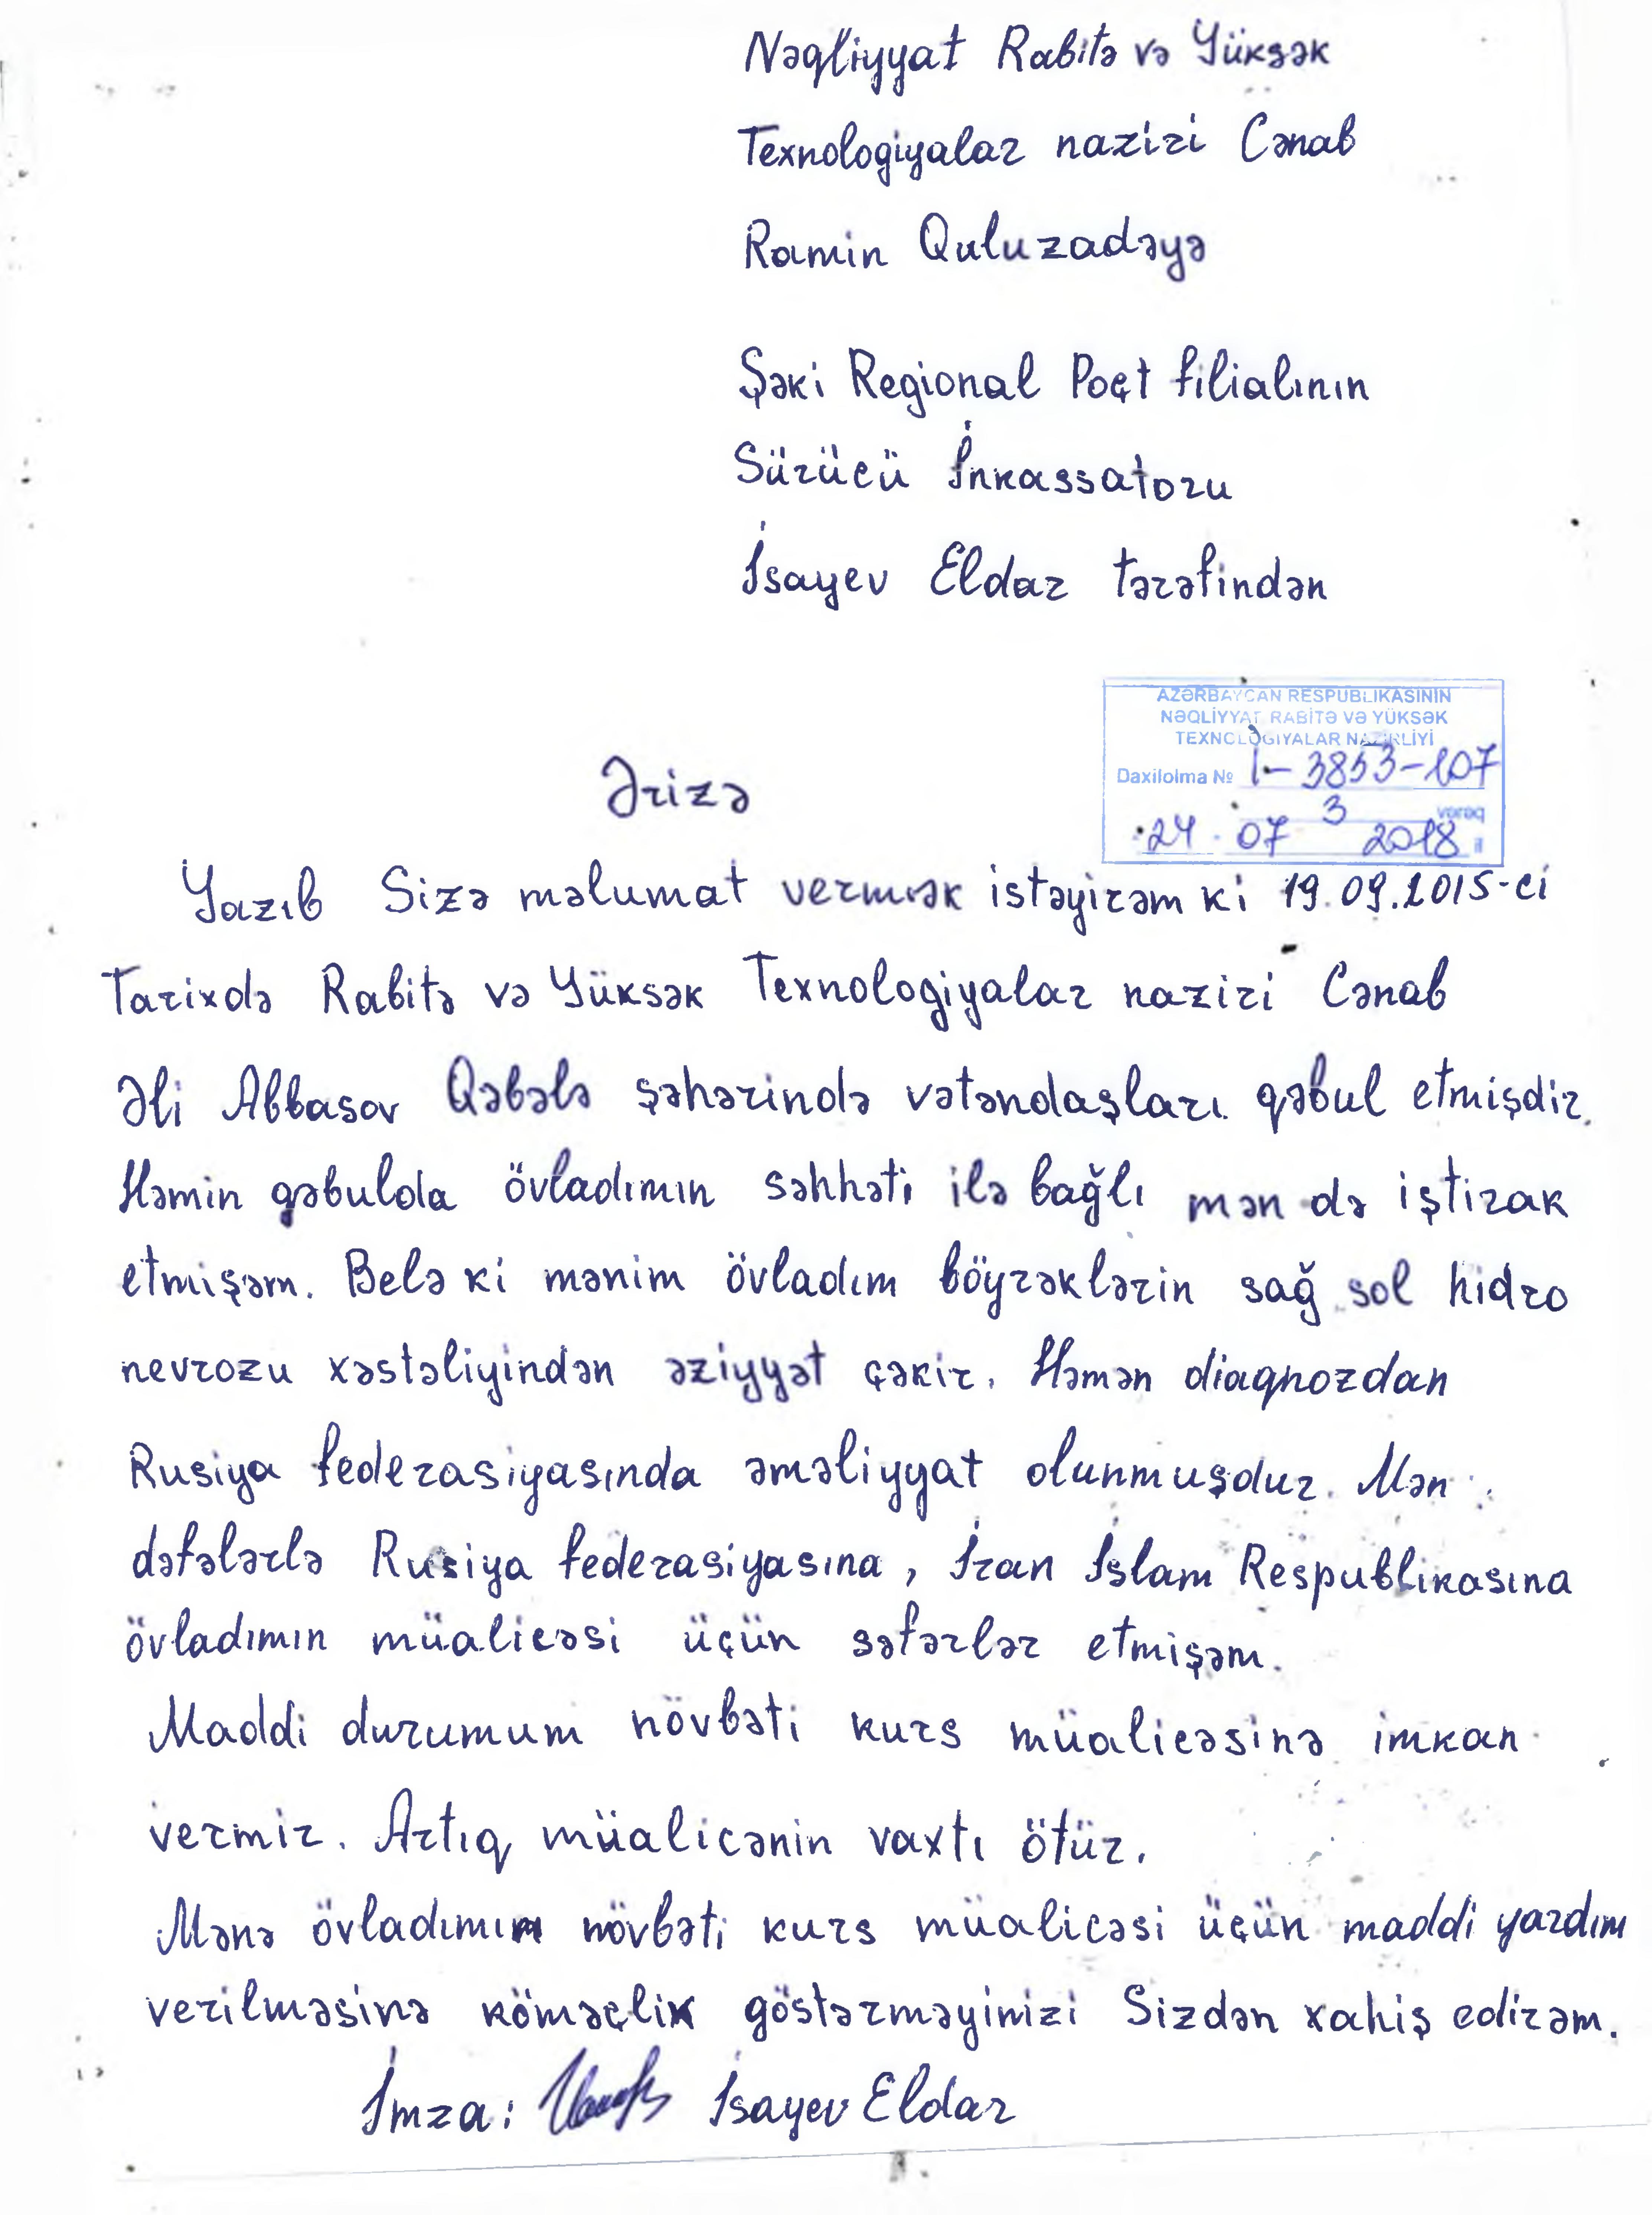 Nəqliyyat Rabitə və Yüksək
Texnologiyalar naziri Cənab
Ramin Quluzadəyə
Şəki Regional Poçt filialının
Sürücü İnkassatoru
İsayev Eldar tərəfindən
AZƏRBAYCAN RESPUBLİKASININ
NƏQLİYYAT RABİTƏ VƏ YÜKSƏK
TEXNOLOGİYALAR NAZİRLİYİ
Daxilolma № 1-3853-107
3 vərəq
24 07 2018 il
Ərizə
Yazıb Sizə məlumat vermək istəyirəm ki 19.09.2015-ci
Tarixdə Rabitə və Yüksək Texnologiyalar naziri Cənab
Əli Abbasov Qəbələ şəhərində vətəndaşları qəbul etmişdir.
Həmin qəbulda övladımın səhhəti ilə bağlı mən də iştirak
etmişəm. Belə ki mənim övladım böyrəklərin sağ sol hidro
nevrozu xəstəliyindən əziyyət çəkir. Həmən diaqnozdan
Rusiya federasiyasında əməliyyat olunmuşdur. Mən
dəfələrlə Rusiya federasiyasına, İran İslam Respublikasına
övladımın müalicəsi üçün səfərlər etmişəm.
Maddi durumum növbəti kurs müalicəsinə imkan
vermir. Artıq müalicənin vaxtı ötür.
Mənə övladımın növbəti kurs müalicəsi üçün maddi yardım
verilməsinə köməçlik göstərməyinizi Sizdən xahiş edirəm.
İmza: İsayev Eldar